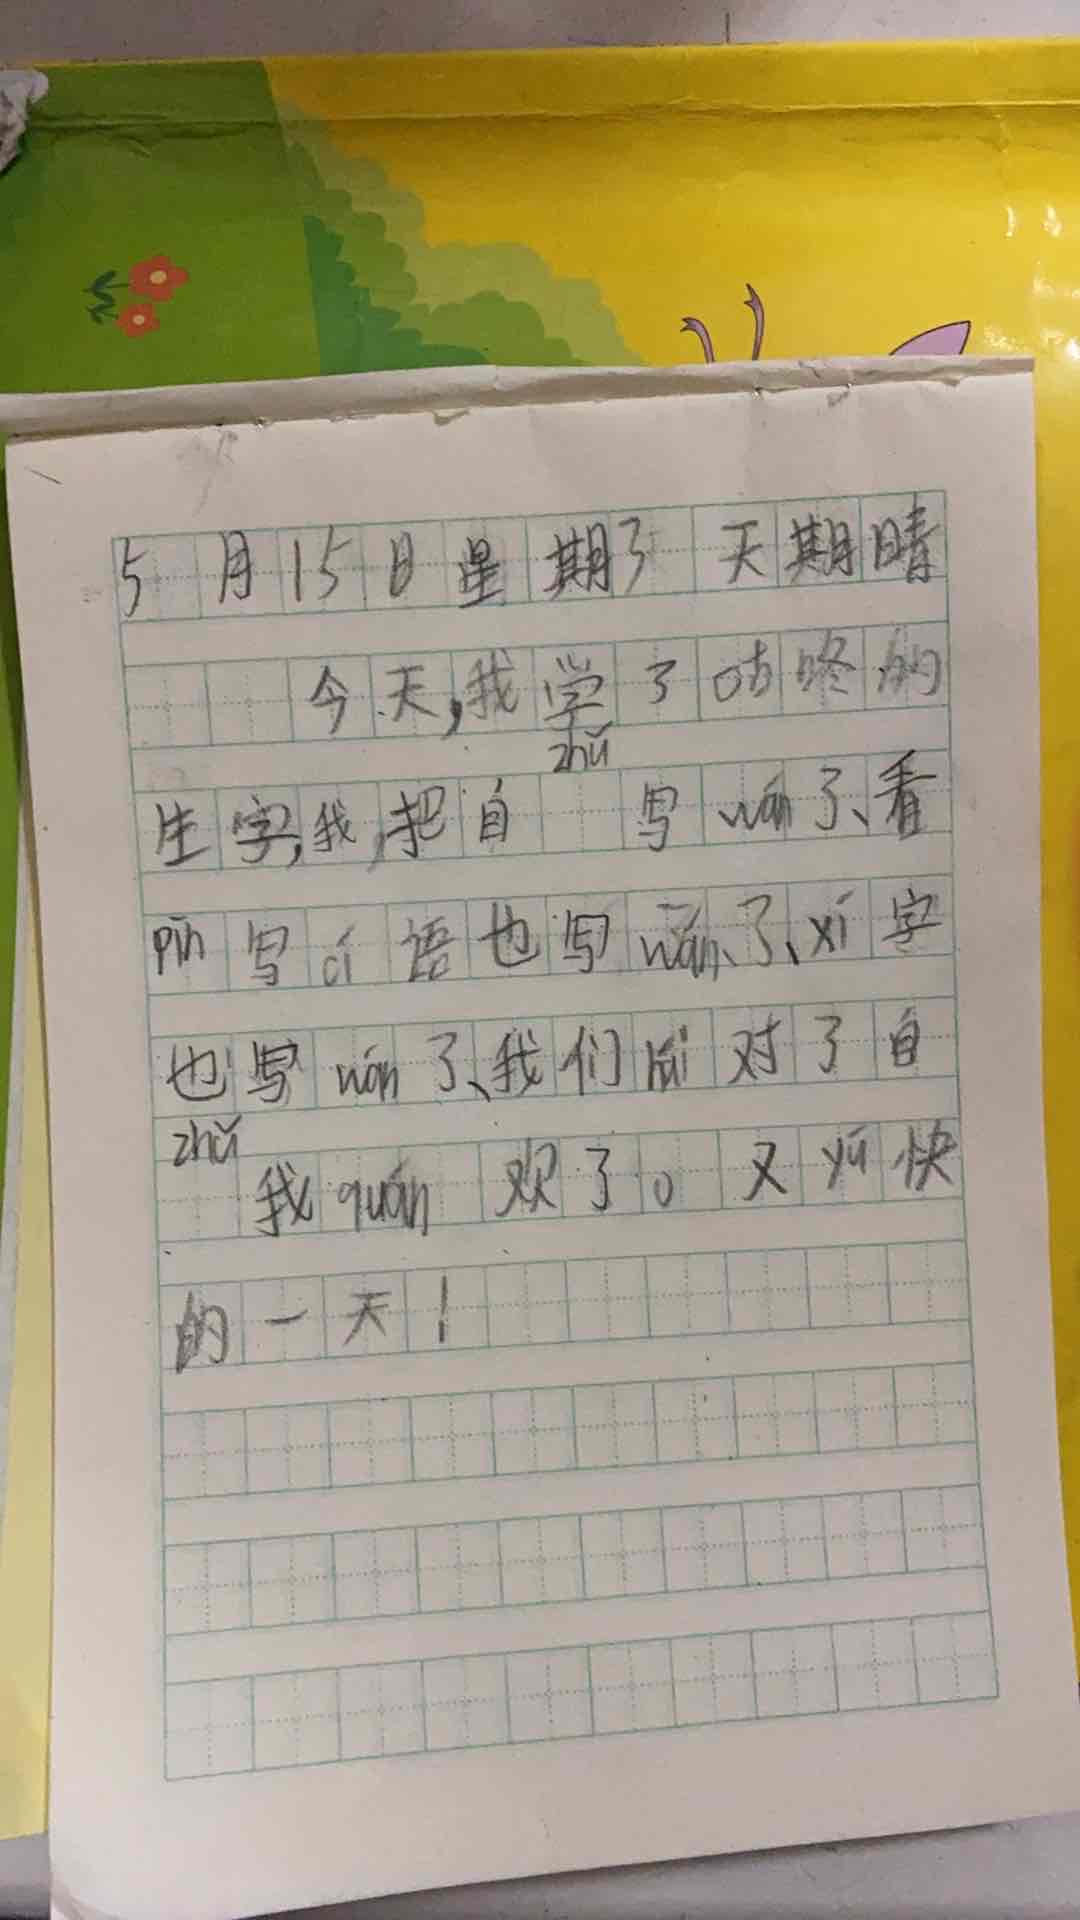 5月15日星期3 天期晴
今天,我学了咕咚的
zhǔ
生字,我,把自 写wán了、看
pīn写cí语也写wán、了、xí字
也写wán了、我们lái对了自
zhǔ
我quán欢了。又yú快
的一天!